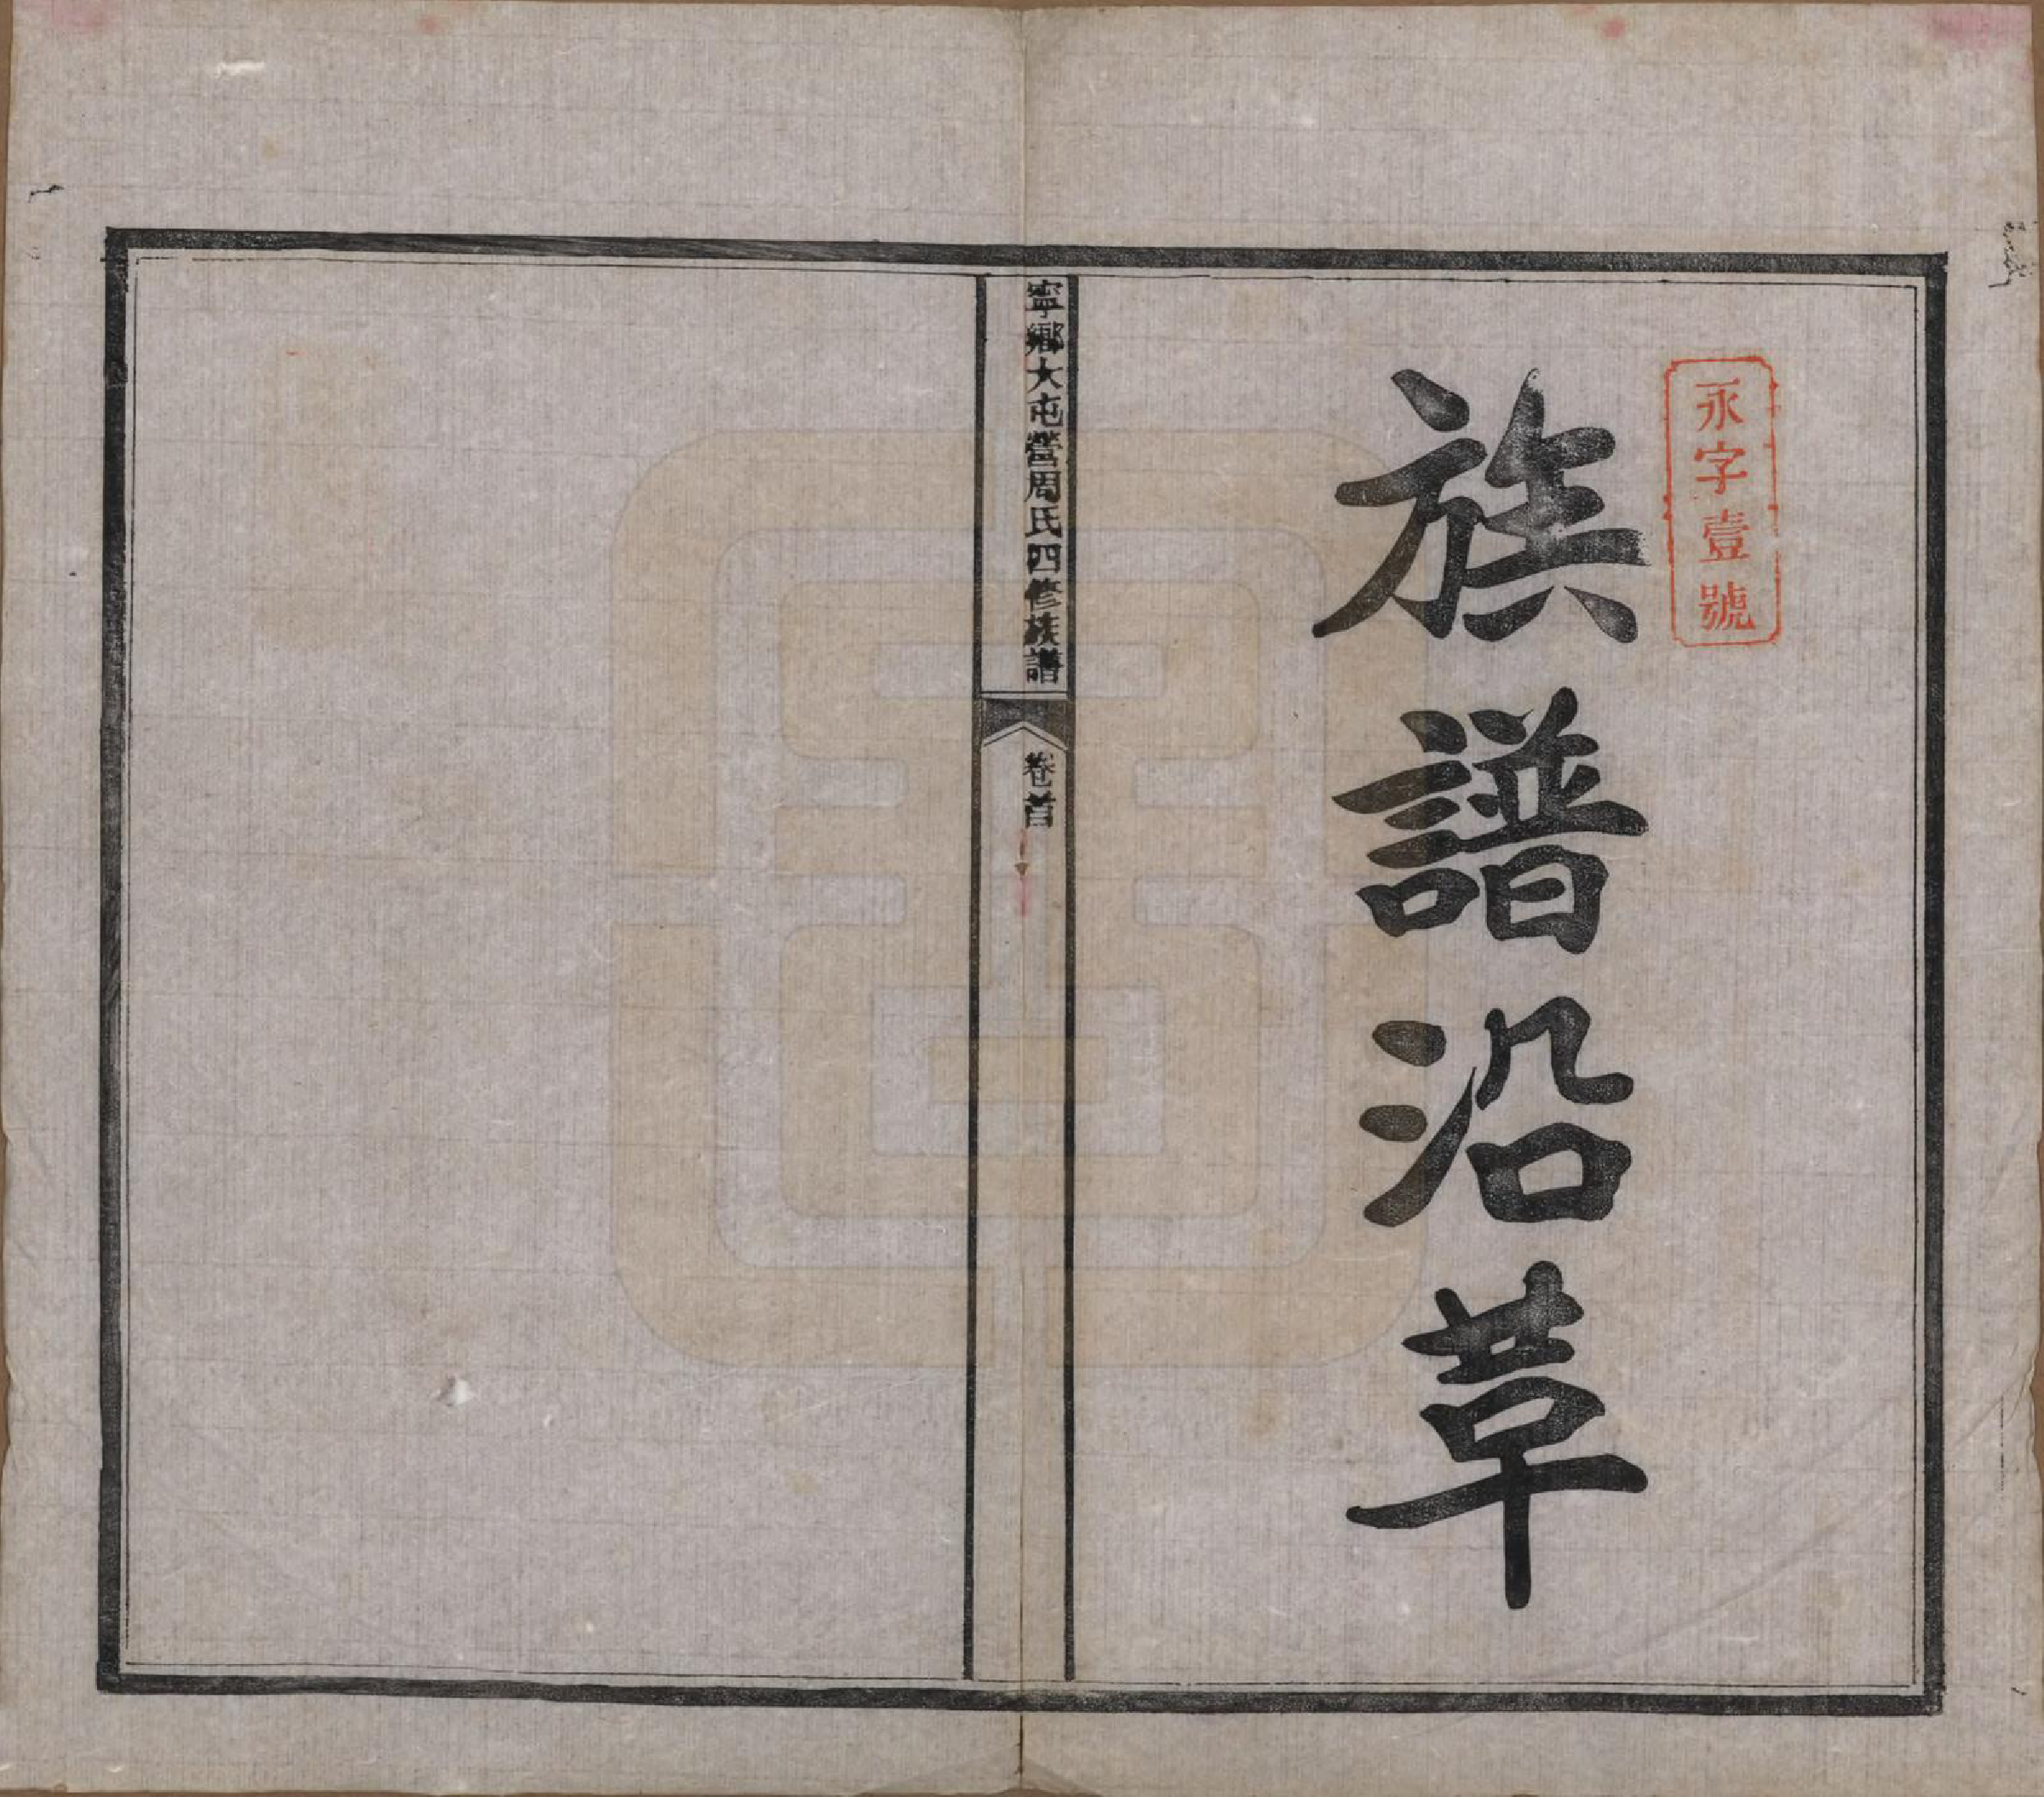 永字壹號
族譜沿革
寧鄉大屯營周氏四修族譜
卷首